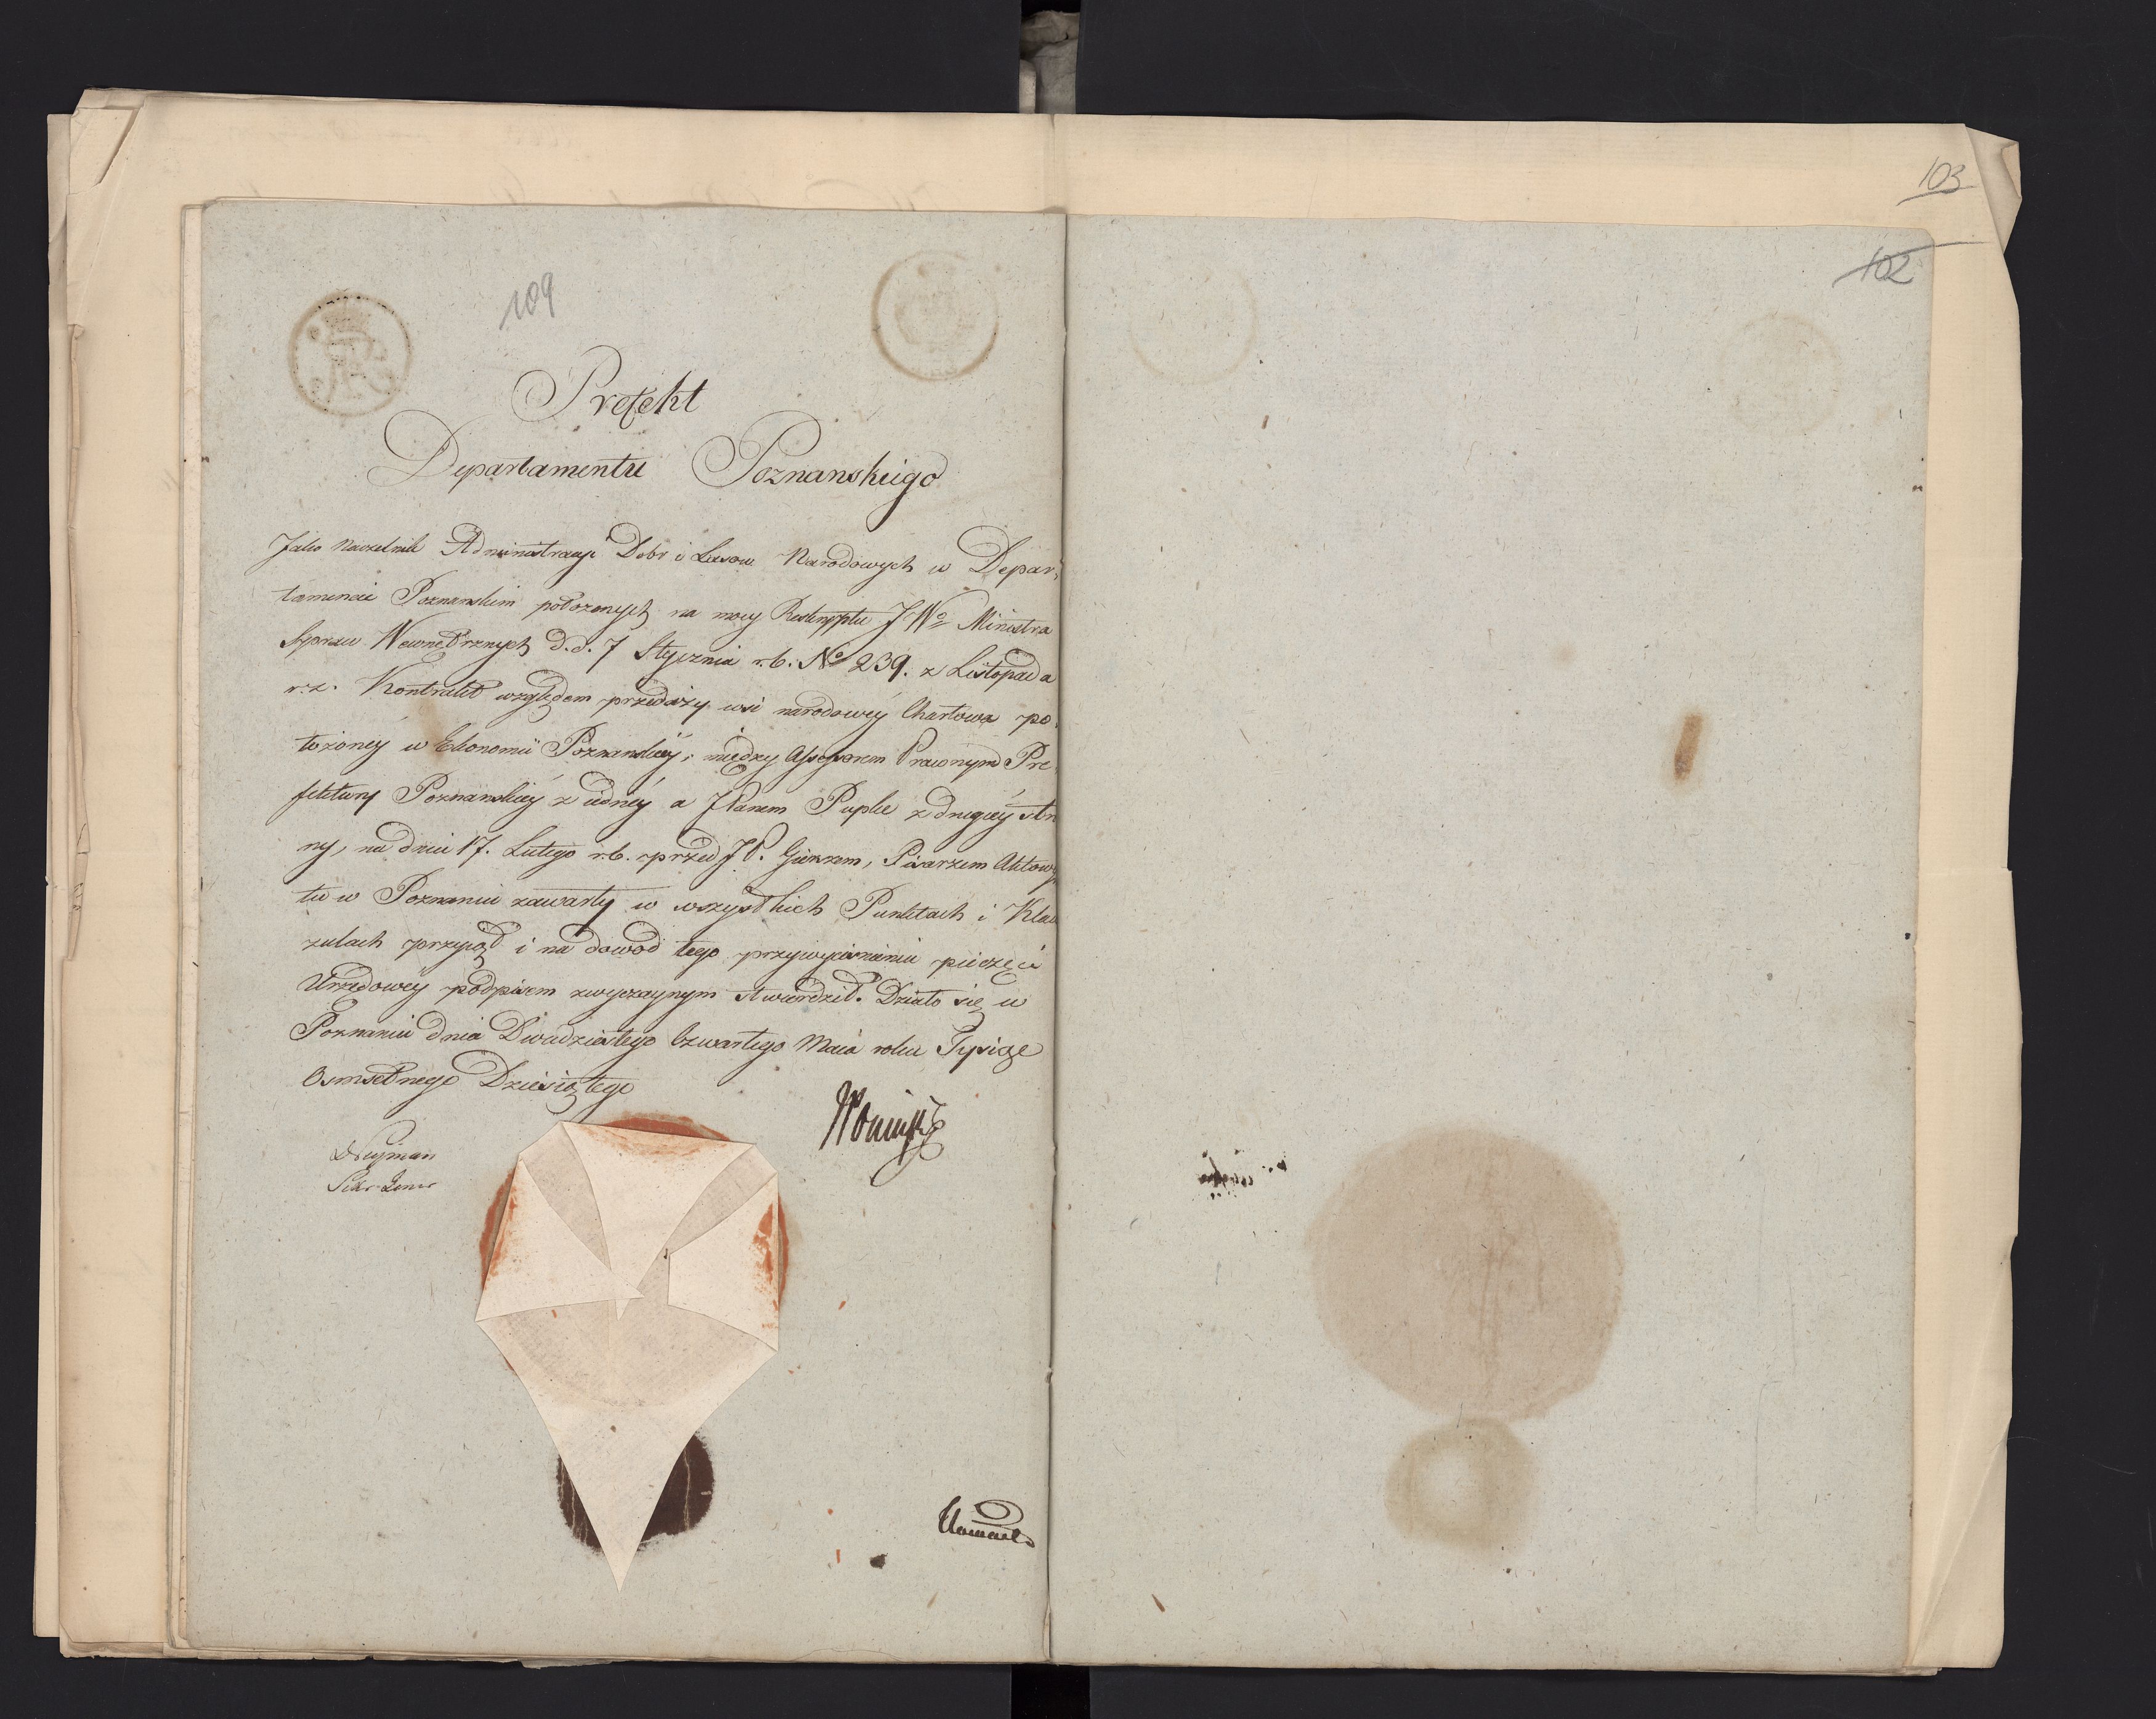 103
102
109
Prefekt
Departamentu Poznanskiego
Jako Naczelnik Administracyi Dobr i Lasow Narodowych w Depar,
tamencie Poznanskim położonych na mocy Reskryptu JWo Ministra
Spraw Wewnętrznych d.d. 7 Stycznia r.b. No 239. z Listopada
r.z. Kontrakt względem przedaży wsi narodowey Chartowa po,
łożoney w Ekonomii Poznanskiey, między Assessorem Prawnym Pre,
fektury Poznanskiey z iedney a JPanem Pupke z drugiey stro
ny, na dniu 17. Lutego r.b. przed JP. Pisarzem Aktowym
tu w Poznaniu zawarty w wszystkich Punktach i Klau
zulach przyiął i na dowod tego przy wyciśnieniu pieczęci
Urzędowey podpisem zwyczaynym stwierdził. Działo się w
Poznaniu dnia Dwudziestego Czwartego Maia roku Tysiąc
Osmsetnego Dziesiątego